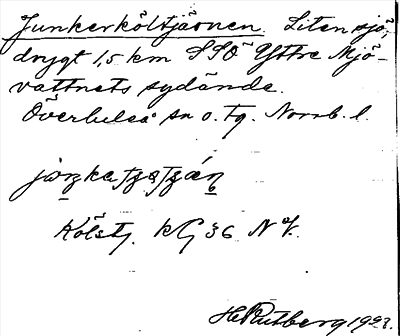 Junkerköltjärnen. Liten sjö,
drygt 1,5 km SSO Yttre Mjö-
vattnets sydände.
Överluleå sn o. tg. Norrb. l.
Kölstj. kG 36 NV.
H Rutberg 1923.